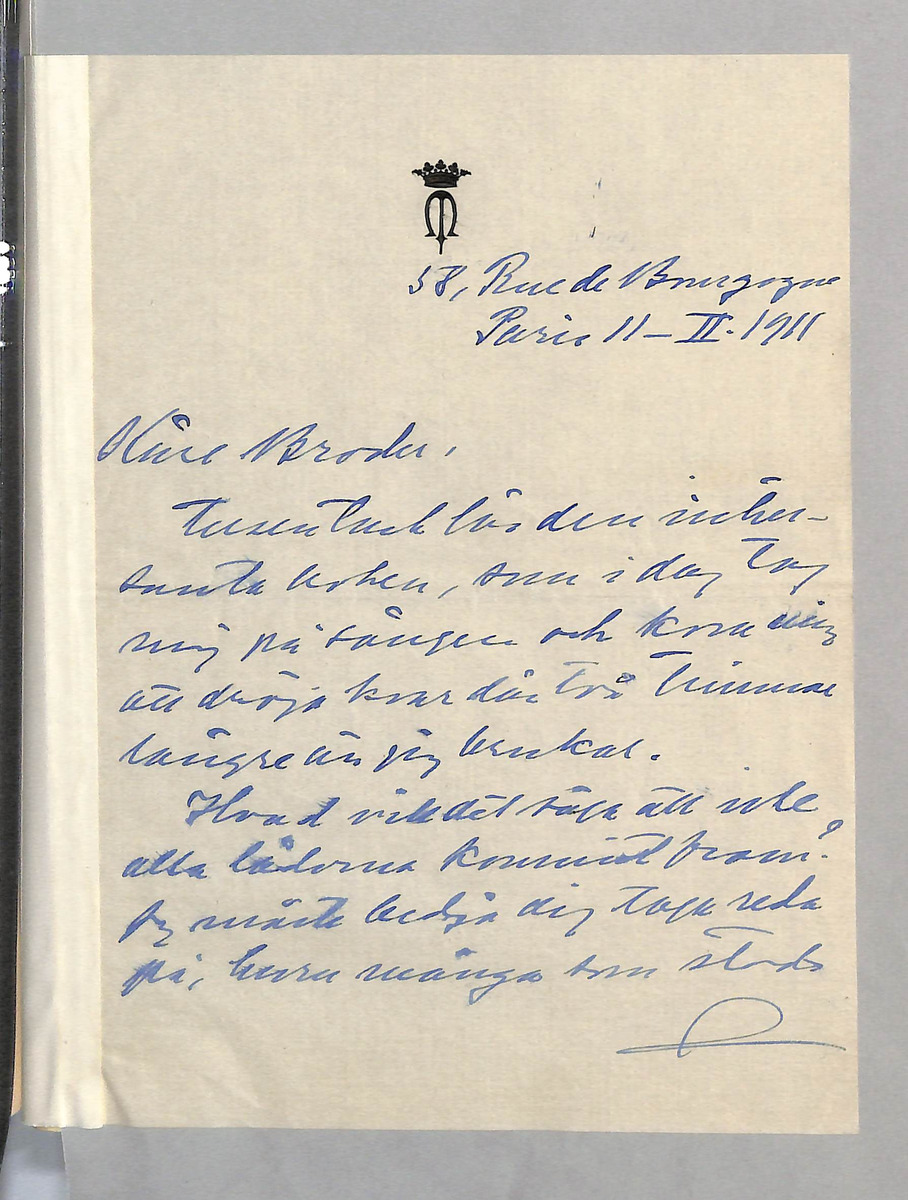 58, Rue de Bourgogne
Paris 11-II-1911
Käre Broder,
Tusen tack för den intres-
santa boken, som i dag tog
mig på sängen och kom mig
att dröja kvar där två timmar
längre än jag brukar.
Hvad vill det säga att icke
alla lådorna kommit fram?
Jag måste bedja dig taga reda
på, huru många som